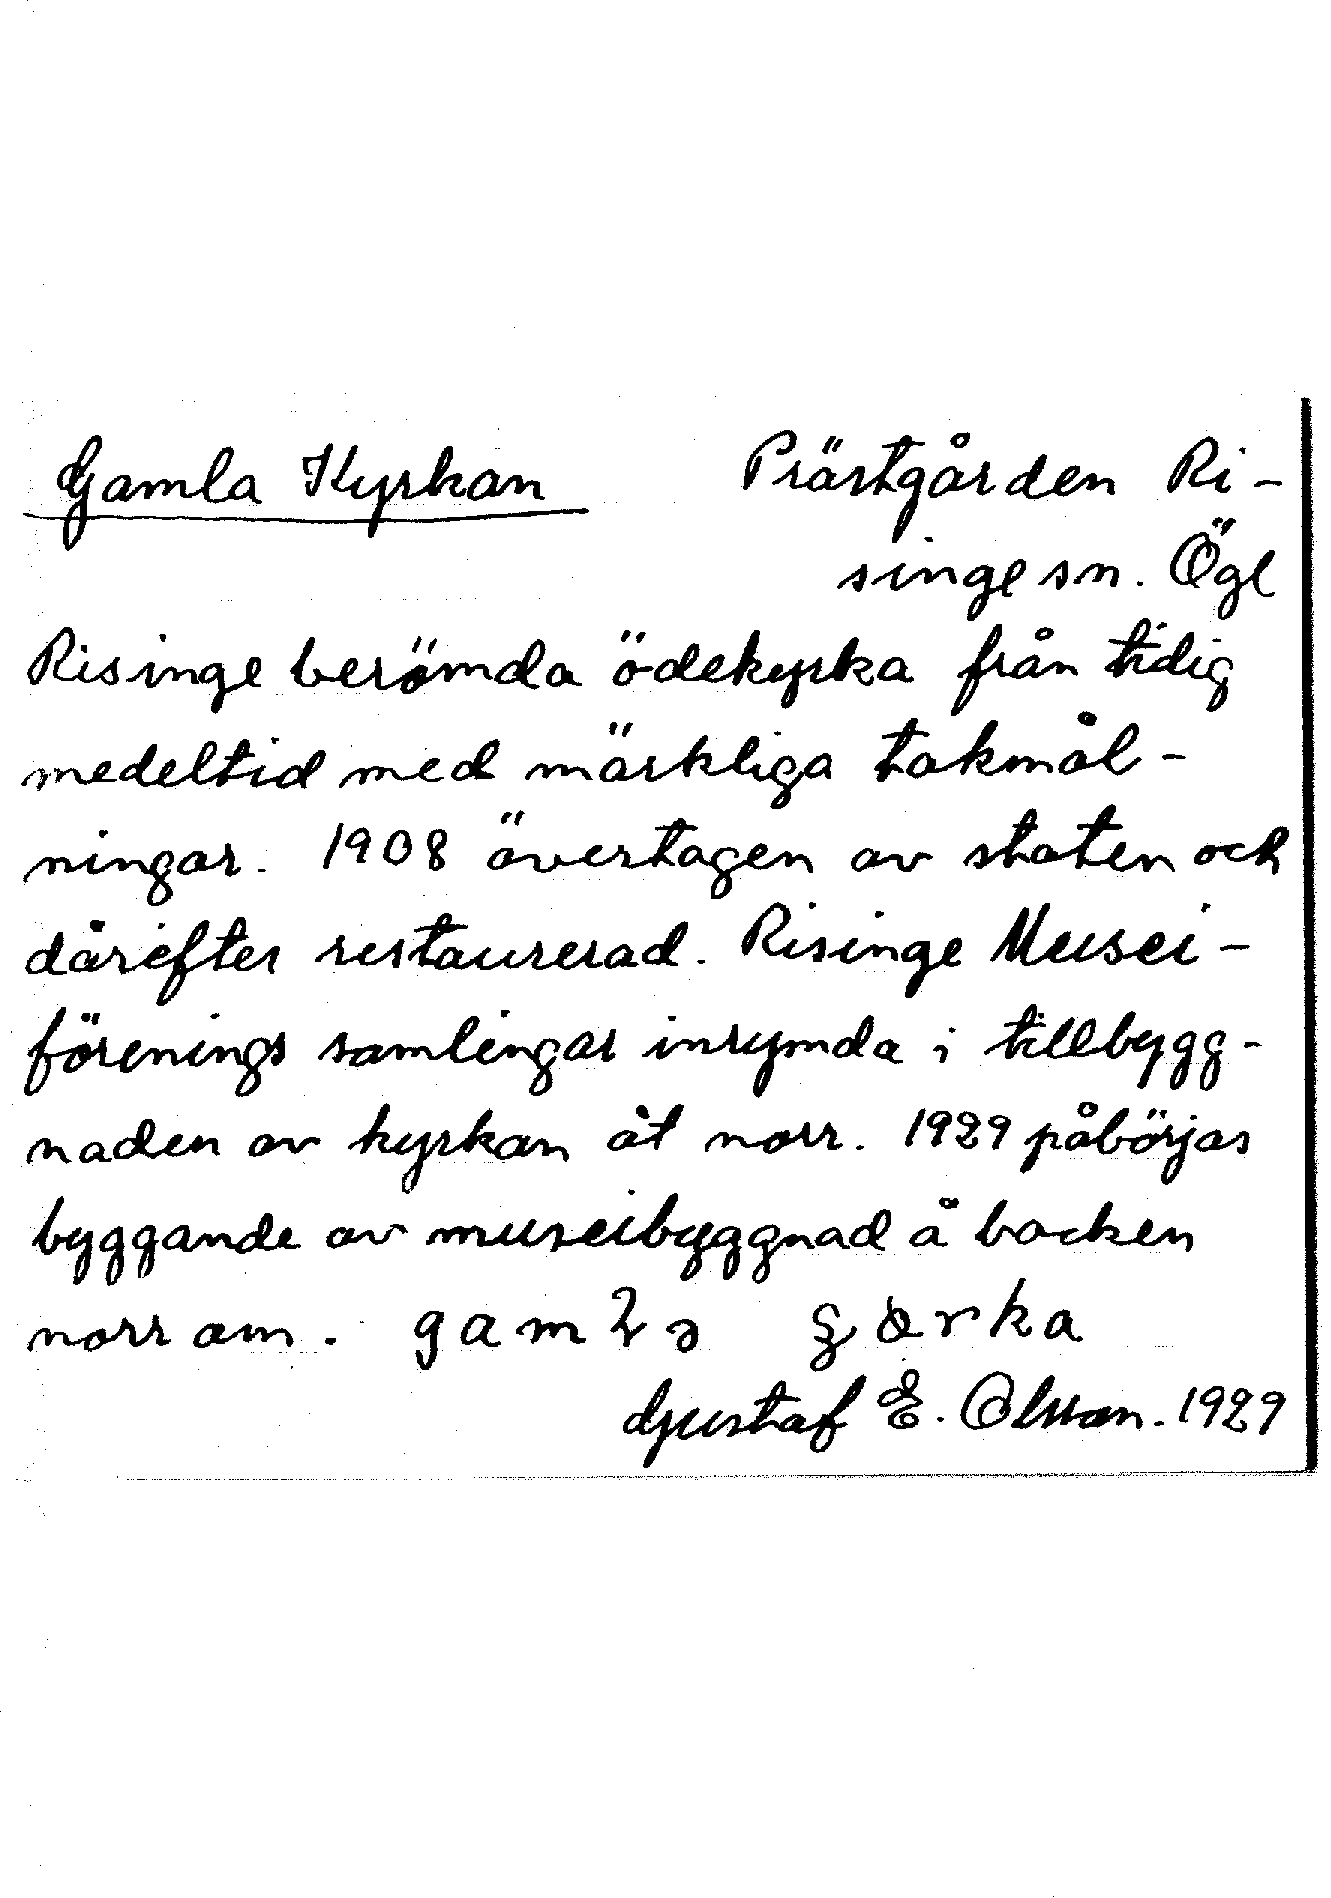 Gamla Kyrkan Prästgården Ri-
singe sn. Ögl
Risinge berömda ödekyrka från tidig
medeltid med märkliga takmål-
ningar. 1908 övertagen av staten och
därefter restaurerad. Risinge Musei-
förenings samlingar inrymda i tillbygg-
naden av kyrkan åt norr. 1929 påbörjas
byggande av museibyggnad å backen
norr om.
Gustaf E. Olsson. 1929